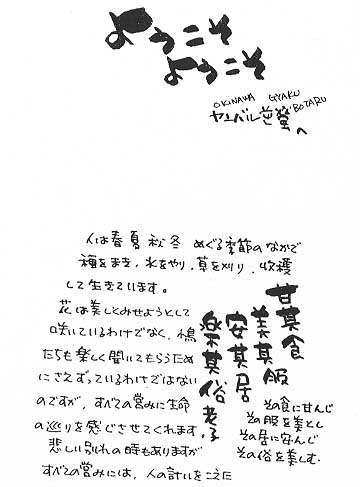 ようこそ
ようこそ
OKINAWA GYAKU BOTARU
ヤンバル逆螢へ
人は春夏秋冬 めぐる季節のなかで
種をまき、水をやり、草を刈り、収穫
して生きています。
花は美しとみせようとして
咲いているわけでなく、小鳥
たちも楽しく聞いてもらうため
にさえずっているわけではない
のですが、すべての営みに生命
の巡りを感じさせてくれます。
悲しい別れの時もありますが
すべての営みには、人の計いをこえた
甘其食
美其服
安其居
楽其俗 老子
その食に甘んじ
その服を美とし
その居に安んじ
その俗を楽しむ。